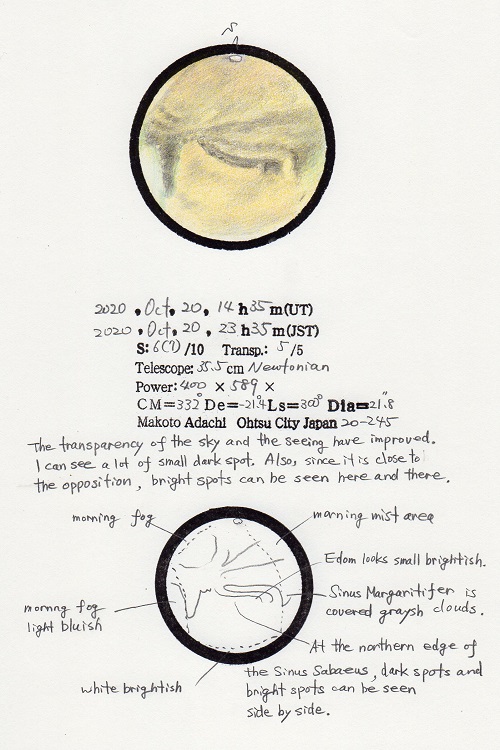 S
2020 . Oct. 20 , 14 h 35 m (UT)
2020 . Oct. 20 , 23 h 35 m (JST)
S: 6(7) /10 Transp.: 5 /5
Telescope: 35.5 cm Newtonian
Power: 400 × 589 ×
CM=332° De=-21.4° Ls=300° Dia=21.8"
Makoto Adachi Ohtsu City Japan 20-245
The transparency of the sky and the seeing have improved.
I can see a lot of small dark spot. Also, since it is close to
the opposition, bright spots can be seen here and there.
morning fog
morning mist area
Edom looks small brightish.
Sinus Margaritifer is
covered graysh clouds.
mornng fog
light bluish
At the northern edge of
the Sinus Sabaeus, dark spots and
bright spots can be seen
side by side.
white brightish